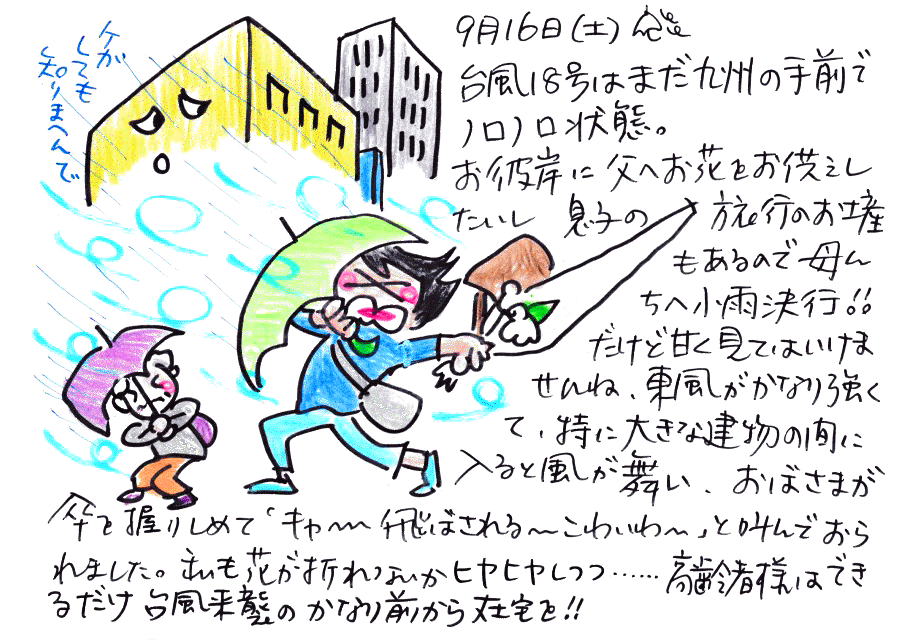 9月16日(土)
台風18号はまだ九州の手前で
ノロノロ状態。
お彼岸に父へお花をお供えし
たいし 息子の 旅行のお土産
もあるので母ん
ちへ小雨決行!!
だけど甘く見てはいけま
せんね、東風がかなり強く
て、特に大きな建物の間に
入ると風が舞い、おばさまが
傘を握りしめて「キャ〜〜飛ばされる〜こわいわ〜」と叫んでおら
れました。私も花が折れないかヒヤヒヤしつつ……高齢者様はでき
るだけ台風来襲のかなり前から在宅を!!
ケガ
しても
知りまへんで